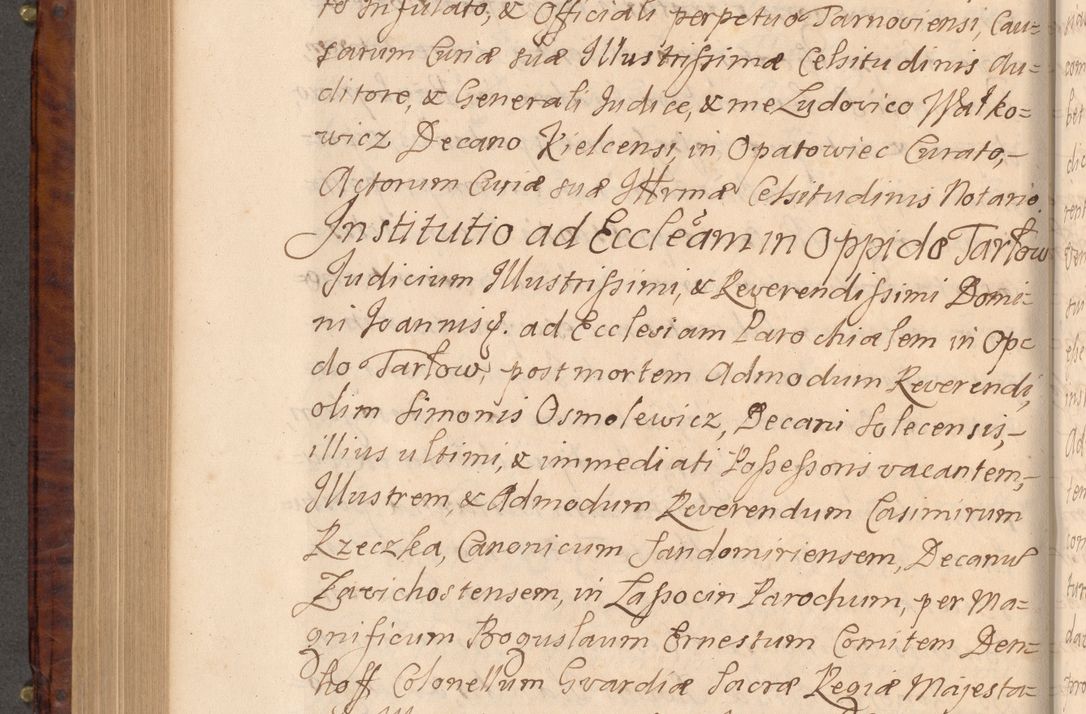 to Infulato, & Officiali perpetuo Tarnoviensi, Cau=
sarum Curiæ suæ Illustrissimæ Celsitudinis Au=
ditore, & Generali Judice, & me Ludovico Watko=
wicz Decano Kielcensi, in Opatowiec Curato,-
Actorum Curiæ suæ Illrmæ Celsitudinis Notario.
Institutio ad Eccleam in Oppido Tarłow
Judicium Illustrissimi, & Reverendissimi Domi=
ni Joannis &. ad Ecclesiam Parochialem in Op
do Tarłow, post mortem Admodum Reverendi,
olim Simonis Osmolewicz, Decani Solecensis,-
illius ultimi, & immediati Possessoris vacantem,-
Illustrem, & Admodum Reverendum Casimirum
Rzeczka, Canonicum Sandomiriensem, Decanu
Zavichostensem, in Lassocin Parochum, per Ma=
gnificum Boguslaum Ernestum Comitem Den=
hoff Colonellum Gvardiæ Sacræ Regiæ Majesta=